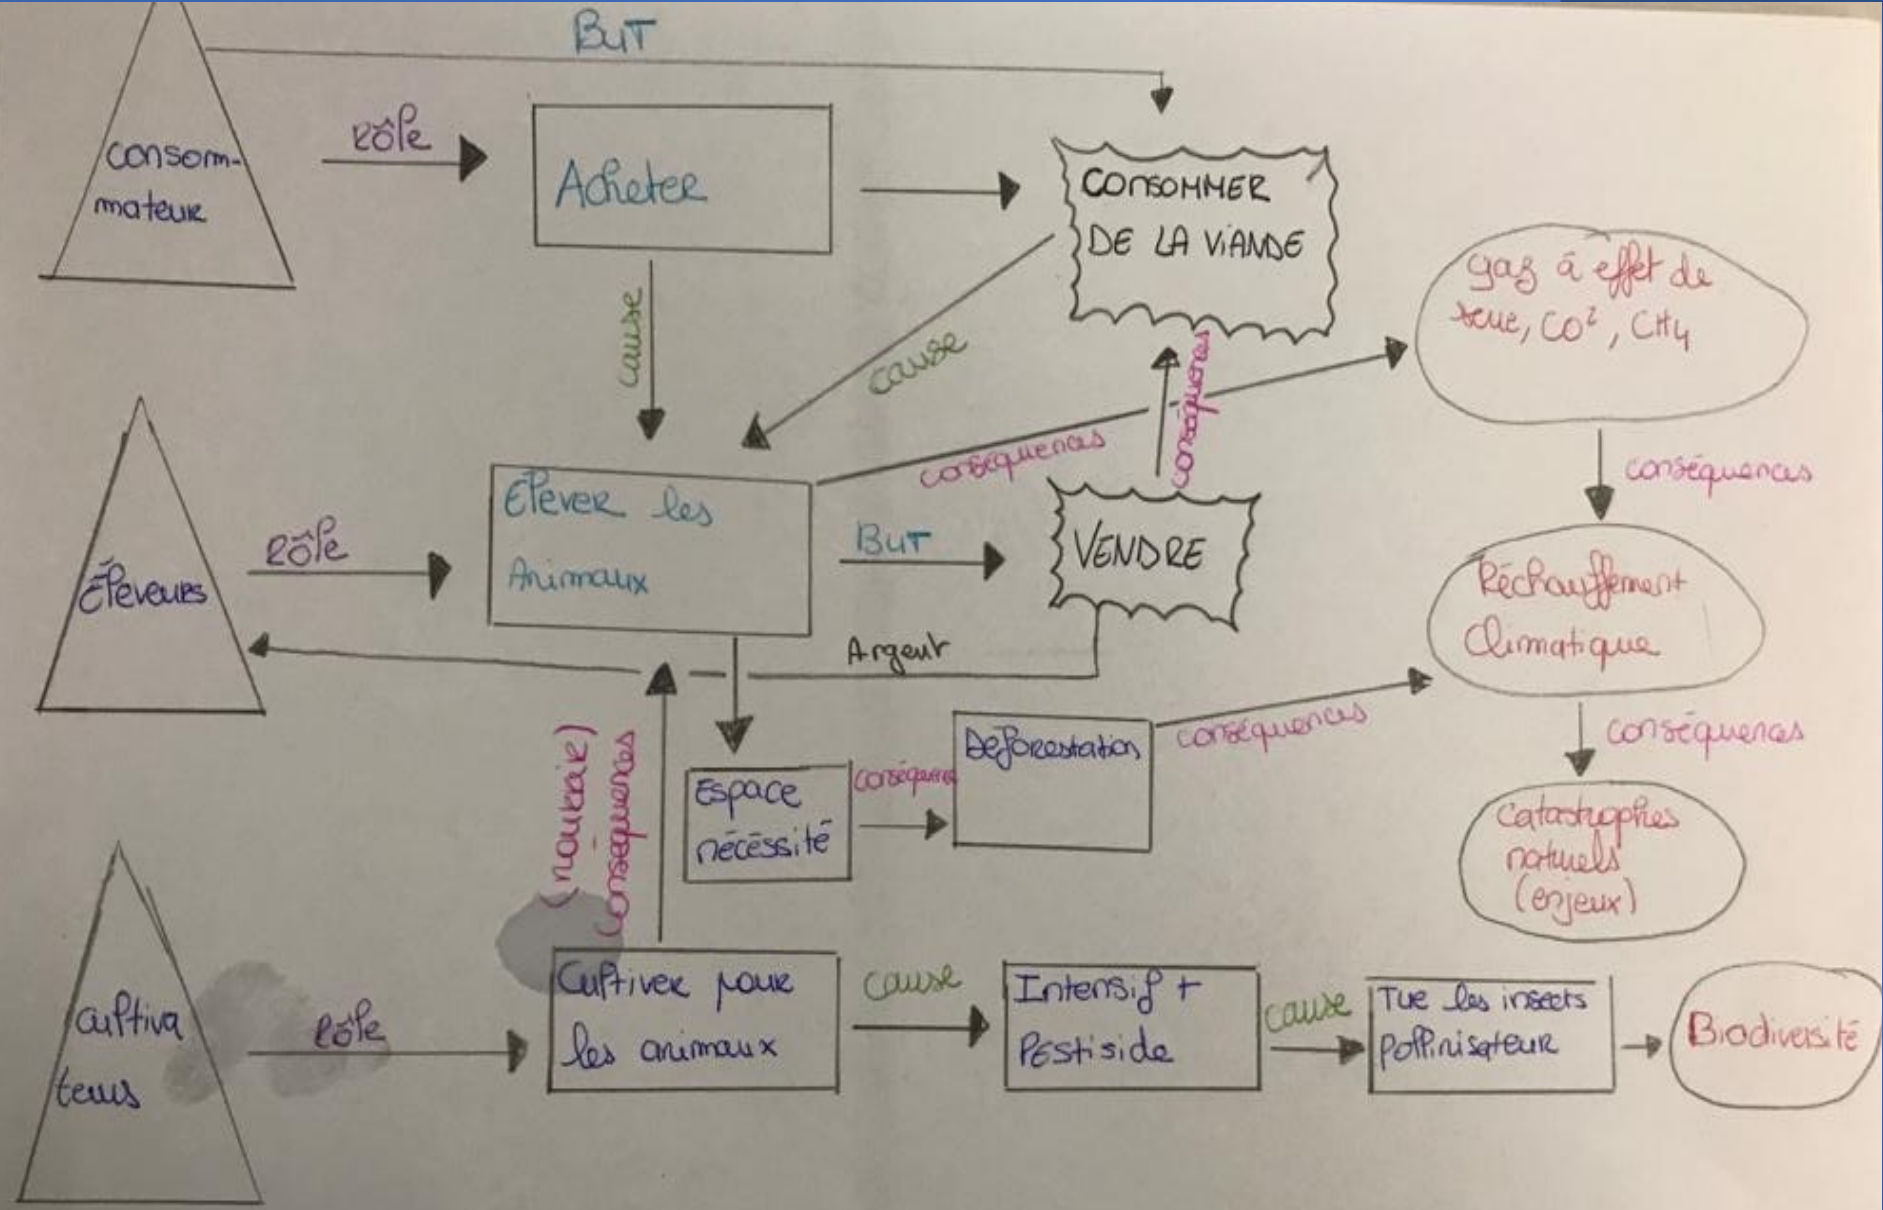 BUT
conson-
mateur
Rôle
Acheter
CONSOMMER
DE LA VIANDE
gaz à effet de
serre, CO², CH4
cause
cause
conséquences
conséquences
conséquences
Éleveurs
Rôle
Élever les
Animaux
BUT
VENDRE
Réchauffement
Climatique
Argent
conséquences
conséquences
Déforestation
Espace
nécéssité
conséquence
Catastrophes
naturels
(enjeux)
(nourrir)
conséquences
cultiva
teurs
Rôle
Cultiver pour
les animaux
cause
Intensif +
Pestiside
cause
Tue les insects
pollinisateur
Biodiversité